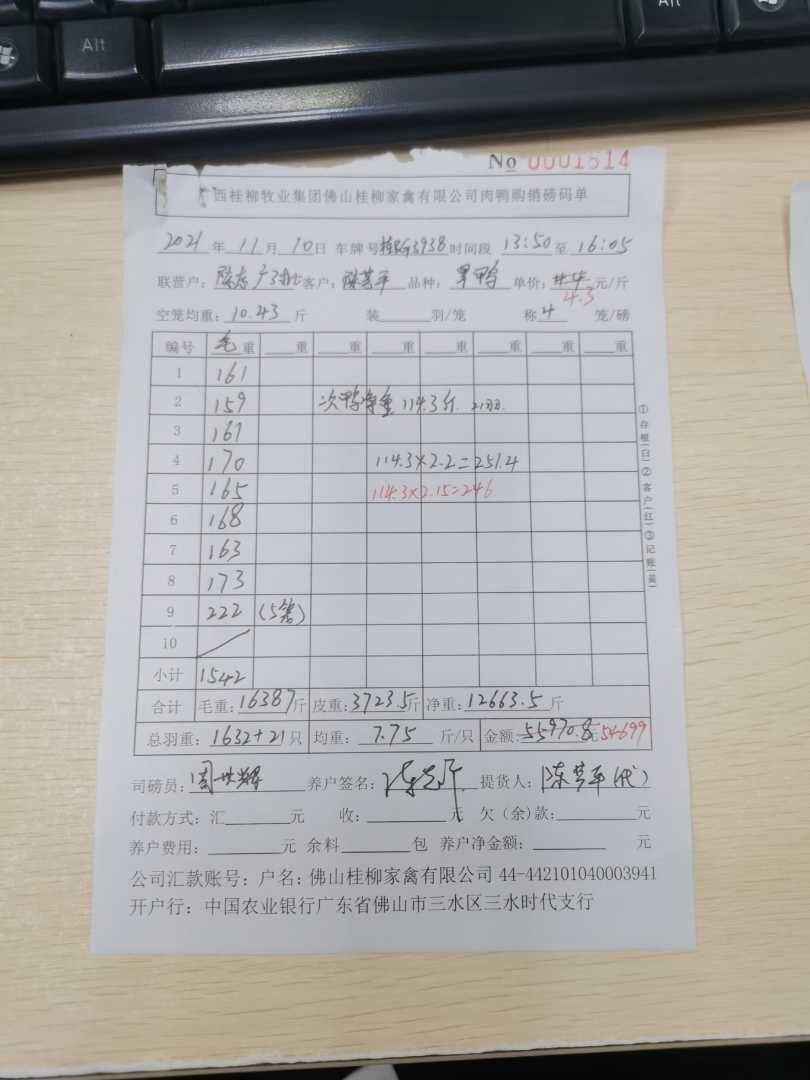 Alt
Alt
No 0001614
西桂柳牧业集团佛山桂柳家禽有限公司肉鸭购销磅码单
2021年11月10日 车牌号 3938 时间段 13:50至16:05
联营户: 客户: 品种: 单价: 4.4 4.3 元/斤
空笼均重: 10.43 斤 装 羽/笼 称 4 笼/磅
编号 毛重 重 重 重 重 重 重 重
1 161
2 159 次鸭净重114.3斤. 21羽.
3 161
4 170 114.3×2.2=251.4
5 165 114.3×2.15=246
6 168
7 163
8 173
9 222 (5笼)
10
小计 1542
合计 毛重: 16387斤 皮重: 3723.5斤 净重: 12663.5斤
总羽重: 1632+21只 均重: 7.75 斤/只 金额: 55970.8元 54699
司磅员: 养户签名: 提货人: (代)
付款方式: 汇 元 收: 元 欠(余)款: 元
养户费用: 元 余料 包 养户净金额: 元
公司汇款账号: 户名: 佛山桂柳家禽有限公司 44-442101040003941
开户行: 中国农业银行广东省佛山市三水区三水时代支行
①存根(白)②客户(红)③记账(黄)